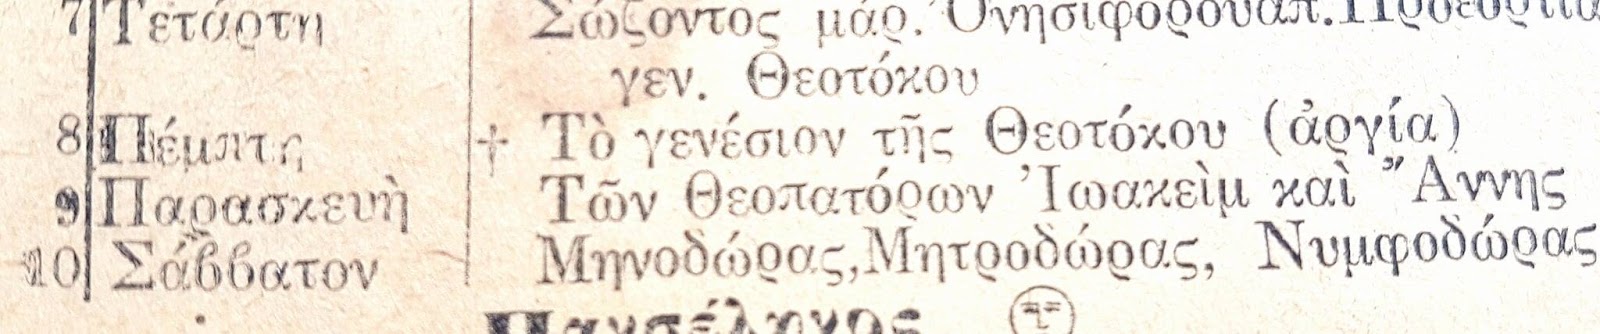 7 Τετάρτη Σώζοντος μάρ. Ὀνησιφόρου ἀπ. Προεόρτια
γεν. Θεοτόκου
8 Πέμπτη † Τὸ γενέσιον τῆς Θεοτόκου (ἀργία)
9 Παρασκευὴ Τῶν Θεοπατόρων Ἰωακεὶμ καὶ Ἄννης
10 Σάββατον Μηνοδώρας, Μητροδώρας, Νυμφοδώρας
Πανσέληνος